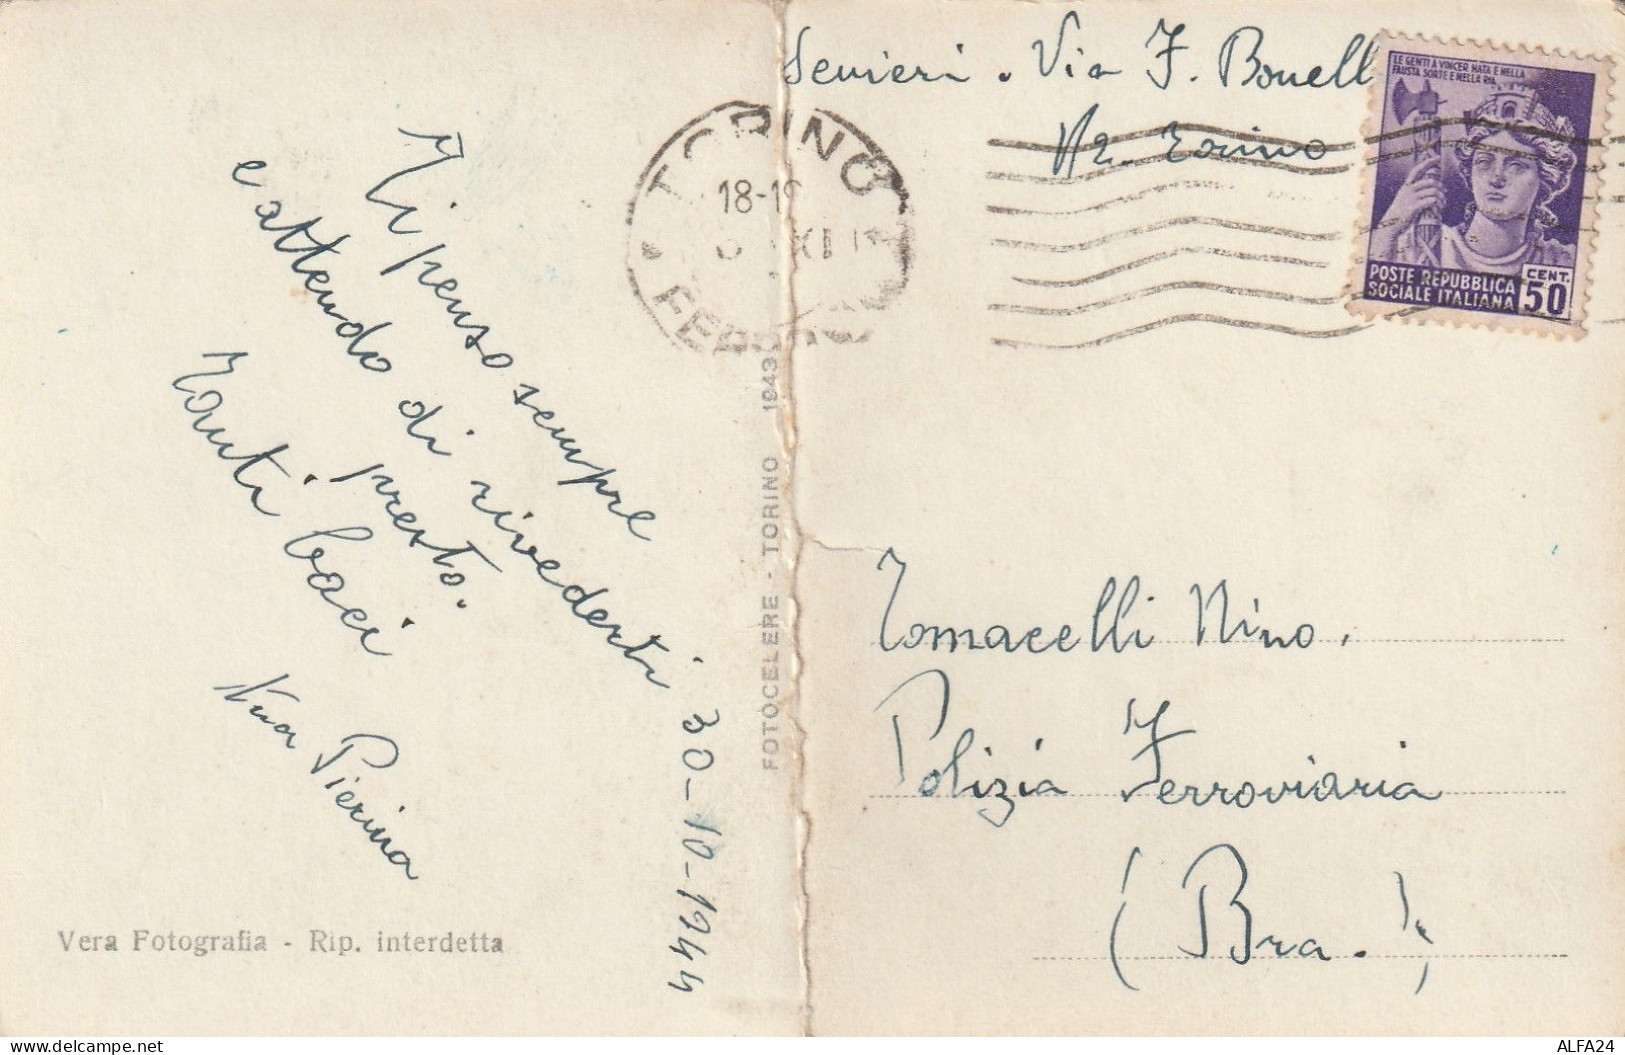 Ti penso sempre
e attendo di rivederti
presto.
Tanti baci
Pierina
30-10-1944
Vera Fotografia - Rip. interdetta
FOTOCELERE - TORINO 1943
TORINO
18-19
Via F. Bonell
Torino
LE GENTI A VINCER NATA E NELLA
FAUSTA SORTE E NELLA RIA
POSTE REPUBBLICA
SOCIALE ITALIANA
CENT.
50
Tomacelli Nino.
Polizia Ferroviaria
(Bra.)
ALFA24